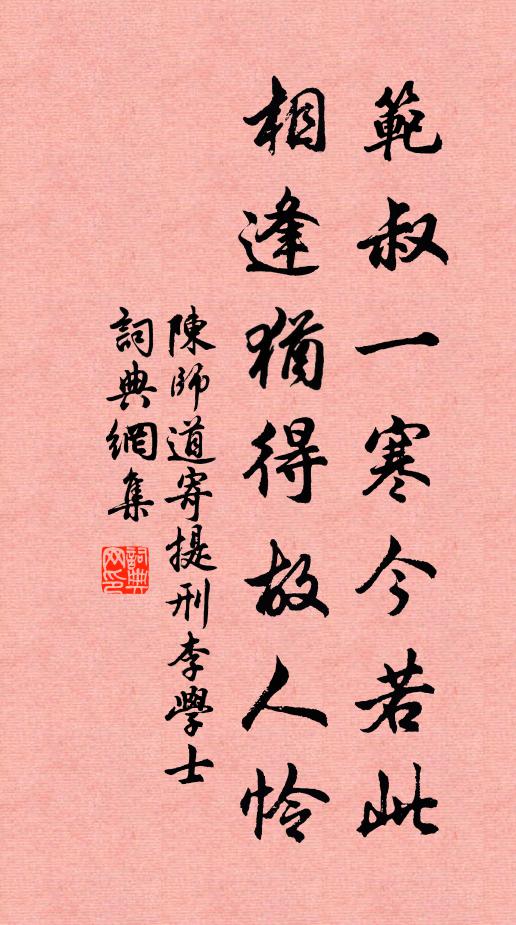 範叔一寒今若此
相逢猶得故人怜
陳師道寄提刑李學士
詞典網集
詞典网印